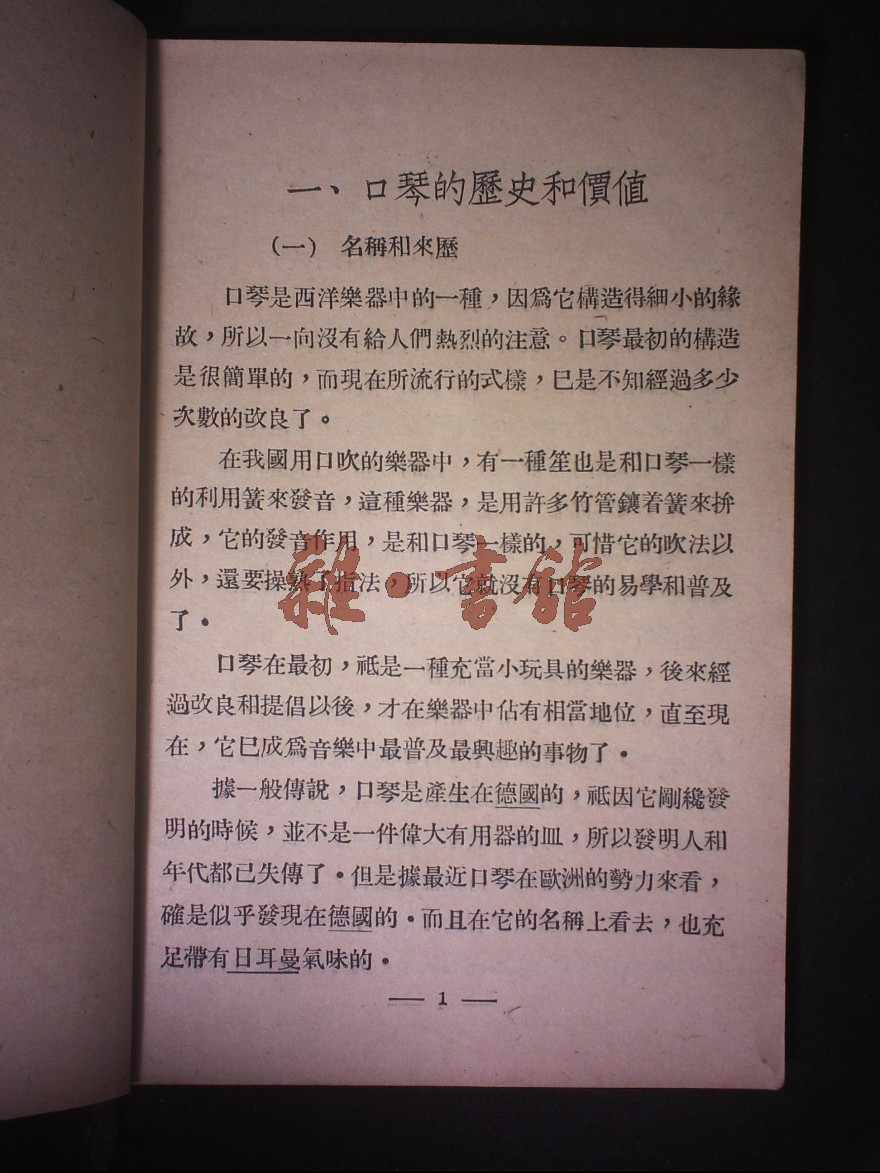 一、口琴的歷史和價值
(一) 名稱和來歷
口琴是西洋樂器中的一種，因爲它構造得細小的緣
故，所以一向沒有給人們熱烈的注意。口琴最初的構造
是很簡單的，而現在所流行的式樣，巳是不知經過多少
次數的改良了。
在我國用口吹的樂器中，有一種笙也是和口琴一樣
的利用簧來發音，這種樂器，是用許多竹管鑲着簧來拚
成，它的發音作用，是和口琴一樣的，可惜它的吹法以
外，還要操熟了指法，所以它就沒有口琴的易學和普及
了。
口琴在最初，祇是一種充當小玩具的樂器，後來經
過改良和提倡以後，才在樂器中佔有相當地位，直至現
在，它巳成爲音樂中最普及最興趣的事物了。
據一般傳說，口琴是產生在德國的，祇因它剛纔發
明的時候，並不是一件偉大有用器的皿，所以發明人和
年代都已失傳了。但是據最近口琴在歐洲的勢力來看，
確是似乎發現在德國的。而且在它的名稱上看去，也充
足帶有日耳曼氣味的。
— 1 —
雜·書館